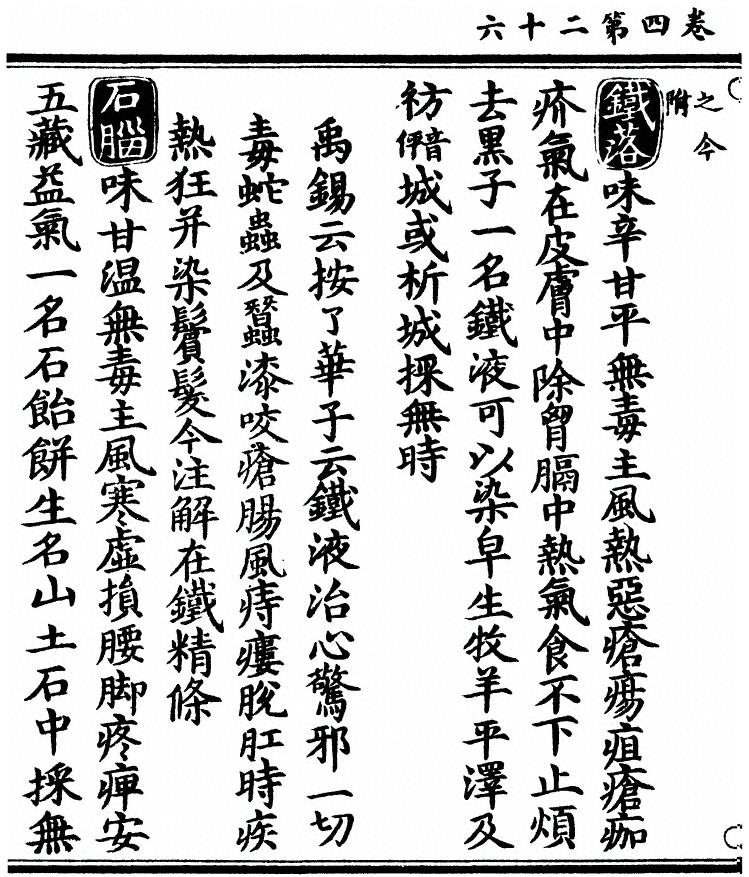 卷四第二十六
之今附
鐵落味辛甘平無毒主風熱惡瘡瘍疽瘡痂
疥氣在皮膚中除胷膈中熱氣食不下止煩
去黒子一名鐵液可以染皁生牧羊平澤及
祊偋音城或析城採無時
禹錫云按了華子云鐵液治心驚邪一切
毒蛇蟲及蠶漆咬瘡腸風痔瘻脫肛時疾
熱狂并染鬢髮今注解在鐵精條
石腦味甘温無毒主風寒虛損腰脚疼痺安
五藏益氣一名石飴餅生名山土石中採無